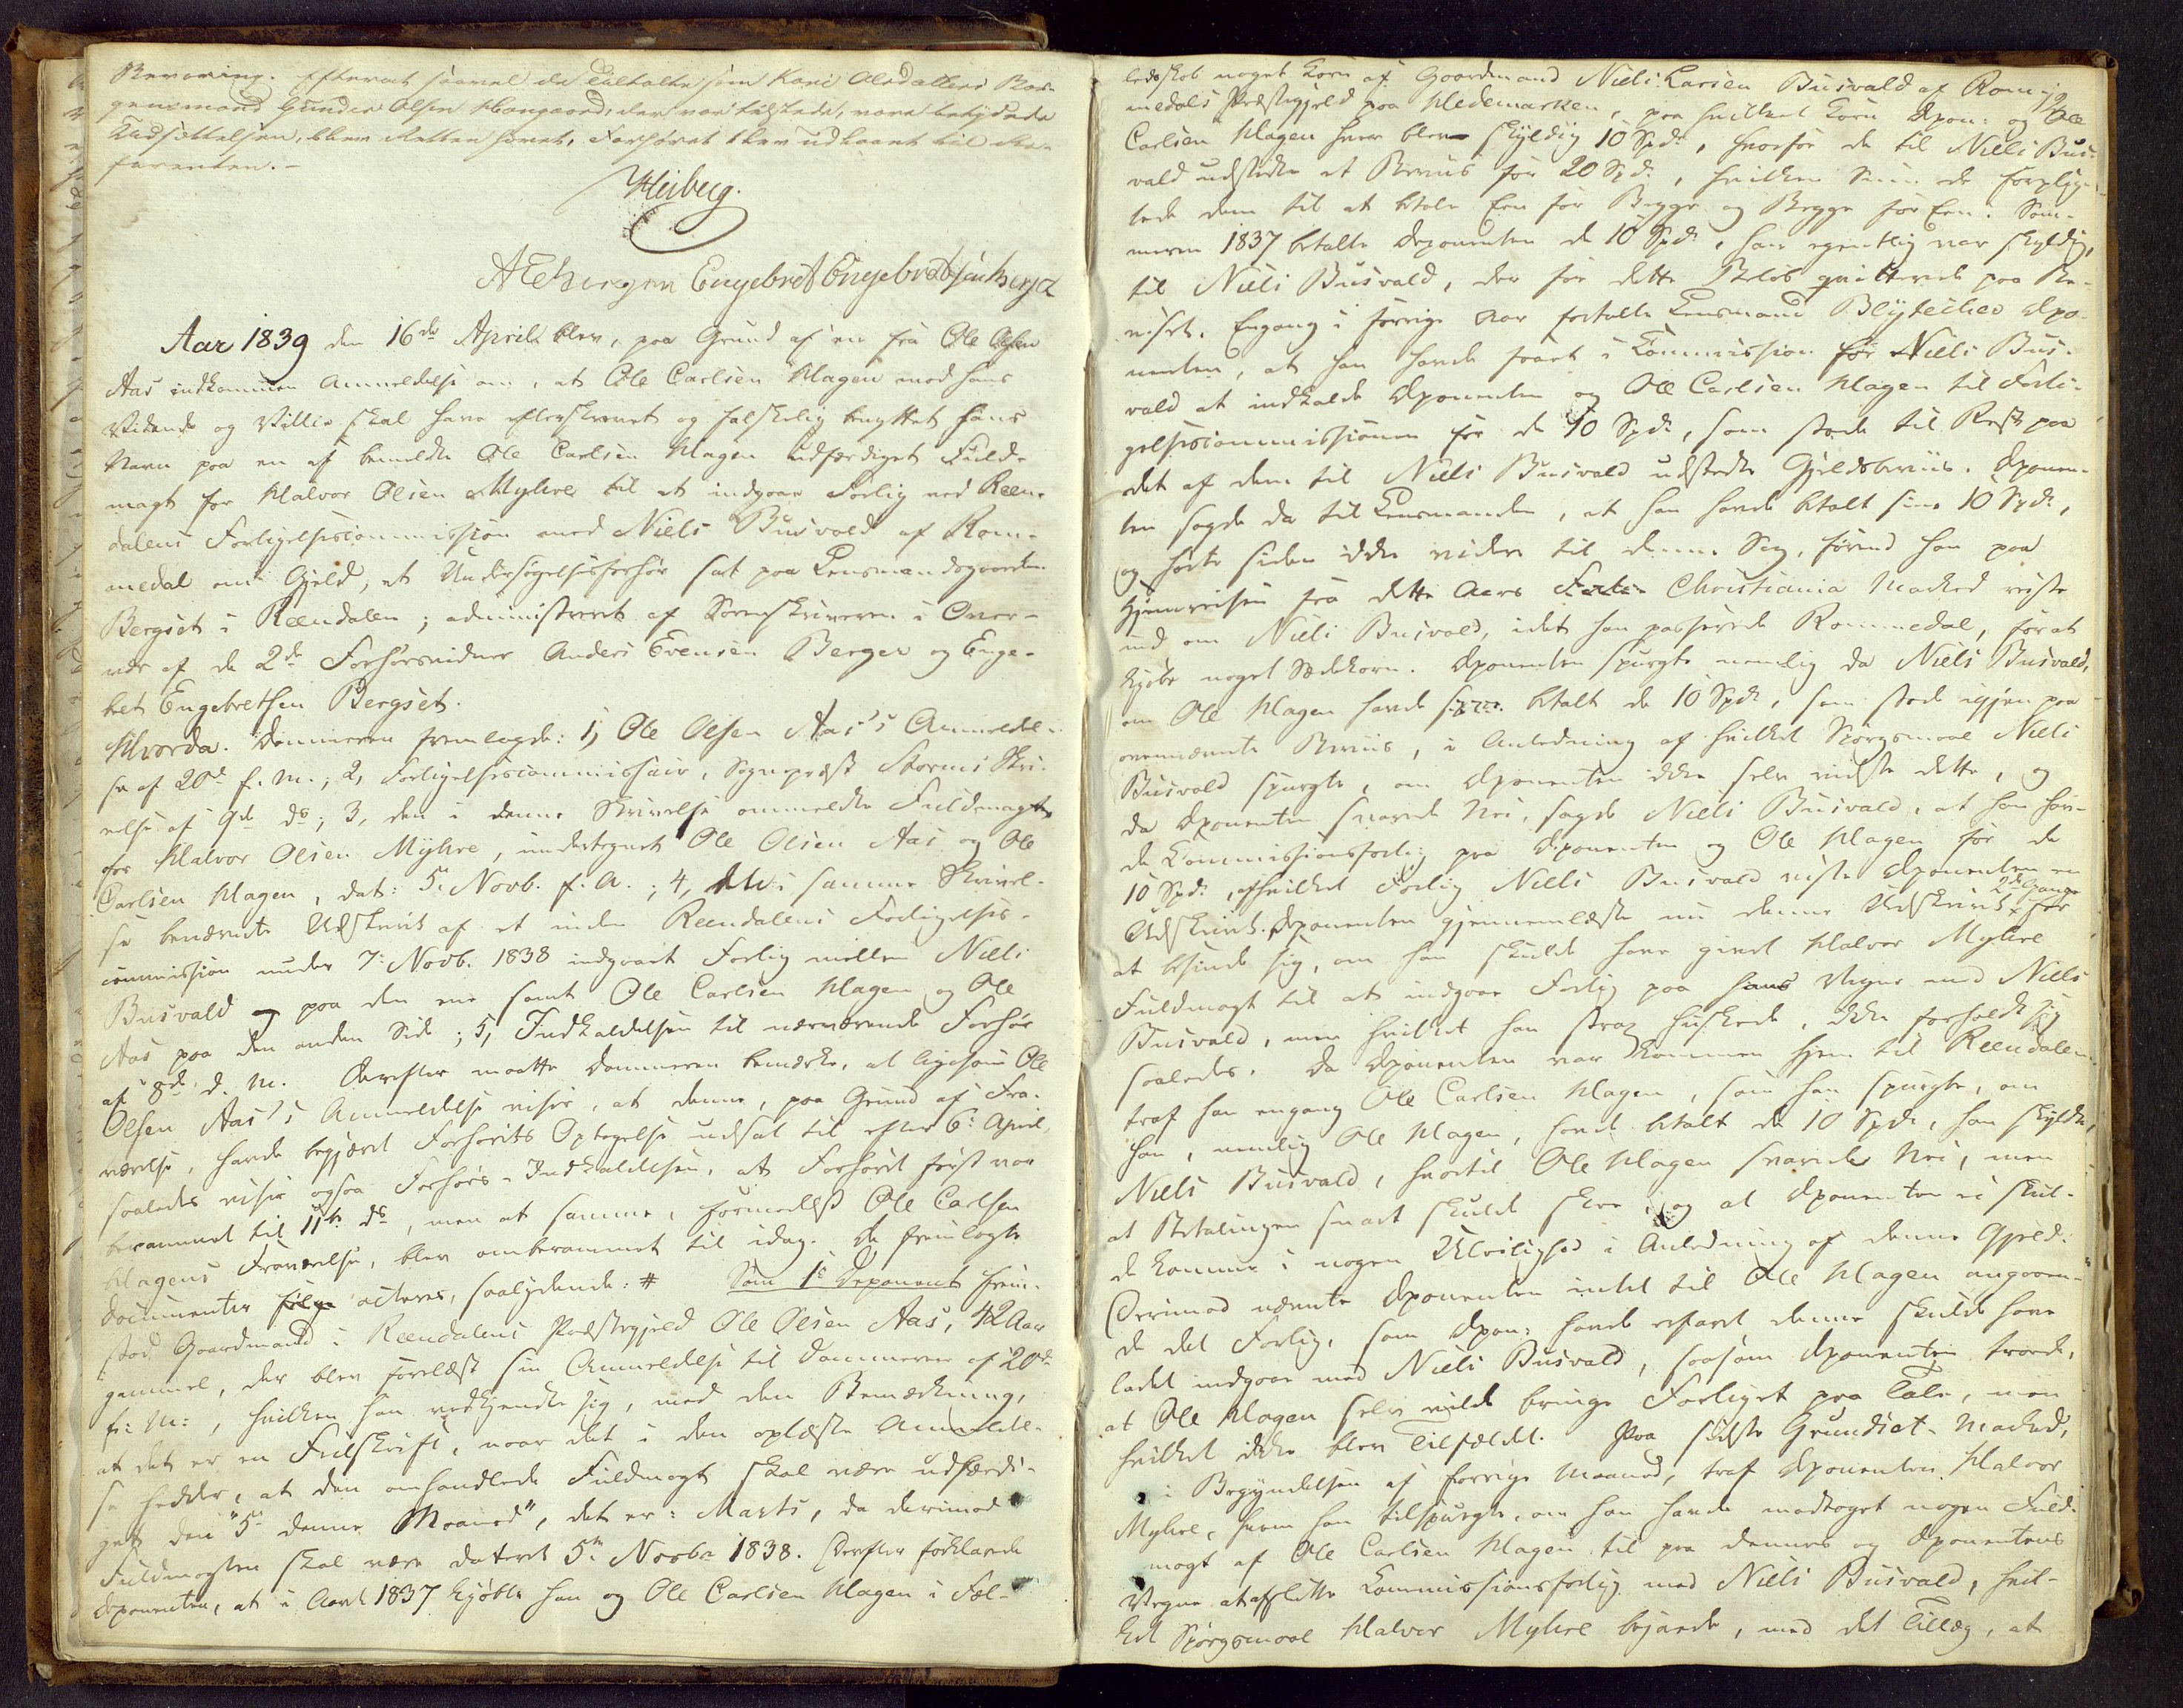 Bevaring. Efterat saavel de Tiltalte som Kari Olsdatters Bor-
gensmand Gunder Olsen Haugaard, der var tilstede, vare betydede
Udsættelsen, blev Retten hævet. Forhøret blev udlaant til Re-
ferenten.-
Heiberg.
AEBergen Engebret Engebretsen Bergset
Aar 1839 den 16de April blev, paa Grund af en fra Ole Olsen
Aas indkommen Anmeldelse om, at Ole Carlsen Hagen mod hans
Vidende og Villie skal have efterskrevet og falskelig benyttet hans
Navn paa en af bemeldte Ole Carlsen Hagen udfærdiget Fuld-
magt for Halvor Olsen Myhre til at indgaae Forlig ved Reen-
dalens Forligelsescommission med Niels Busvald af Rom-
medal om Gjeld, et Undersøgelsesforhør sat paa Lensmandsgaarden
Bergset i Reendalen; administreret af Sorenskriveren i Over-
vær af de 2de Forhørsvidner Anders Evensen Berger og Enge-
bret Engebretsen Bergset.
Hvorda. Dommeren fremlagde: 1, Ole Olsen Aas's Anmeldel-
se af 20de f. M.; 2, Forligelsescommissair, Sognepræst Storms Skri-
velse af 9de ds; 3, den i denne Skrivelse ommeldte Fuldmagt
for Halvor Olsen Myhre, undertegnet Ole Olsen Aas og Ole
Carlsen Hagen, dat: 5. Novb. f. A.; 4, det i samme Skrivel-
se benævnte Udskrivt af et inden Reendalens Forligelses-
commission under 7. Novb. 1838 indgaaet Forlig mellem Niels
Busvald paa den ene samt Ole Carlsen Hagen og Ole
Aas paa den anden Side; 5, Indkaldelsen til nærværende Forhør
af 8de d. M. Derefter maatte Dommeren bemærke, at ligesom Ole
Olsen Aas's Anmeldelse viser, at denne, paa Grund af Fra-
værelse, havde begjæret Forhørets Optagelse udsat til efter 6. April,
saaledes viser ogsaa Forhørs-Indkaldelsen, at Forhøret først var
berammet til 11te ds, men at samme, formedelst Ole Carlsen
Hagens Fraværelse, blev omberammet til idag. De fremlagte
Documenter følge acteres, saalydende: # Som 1e Deponent frem-
stod Gaardmand i Reendalens Præstegjeld Ole Olsen Aas, 42 Aar
gammel, der blev forelæst sin Anmeldelse til Dommeren af 20de
f: M:, hvilken han vedkjendte sig, med den Bemærkning,
at det er en Feilskrift, naar det i den oplæste Anmeldel-
se hedder, at den omhandlede Fuldmagt skal være udfærdi-
get den "5e denne Maaned", det er: Marts, da derimod
Fuldmagten skal være dateret 5te Novbr 1838. Derefter forklarede
Deponenten, at i Aaret 1837 kjøbte han og Ole Carlsen Hagen i Fæl-
ledsskab noget Korn af Gaardmand Niels Larsen Busvald af Rom-
medals Præstegjeld paa Hedemarken, paa hvilket Korn Depon: og Ole
Carlsen Hagen hver blev skyldig 10 Spd:, hvorfor de til Niels Bus-
vald udstedte et Beviis for 20 Spd:, hvilken Sum de forplig-
tede dem til at betale Een for Begge og Begge for Een. Som-
meren 1837 betalte Deponenten de 10 Spd:, han egentlig var skyldig,
til Niels Busvald, der for dette Beløb qvitterede paa Be-
viset. Engang i forrige Aar fortalte Lensmand Blytecher Depo-
nenten, at han havde faaet i Commission for Niels Bus-
vald at indkalde Deponenten og Ole Carlsen Hagen til Forli-
gelsescommissionen for de 10 Spd:, som stode til Rest paa
det af dem til Niels Busvald udstedte Gjeldsbeviis. Deponen-
ten sagde da til Lensmanden, at han havde betalt sine 10 Spd:,
og hørte siden ikke videre til denne Sag, førend han paa
Hjemreisen fra dette Aars Christiania Marked reiste
ind om Niels Busvald, idet han passerede Rommedal, for at
kjøbe noget Sædekorn. Deponenten spurgte nemlig da Niels Busvald,
om Ole Hagen havde betalt de 10 Spd:, som stode igjen paa
ovennævnte Beviis, i Anledning af hvilket Spørgsmaal Niels
Busvald spurgte, om Deponenten ikke selv vidste dette, og
da Deponenten svarede Nei, sagde Niels Busvald, at han hav-
de Commissionsforlig paa Deponenten og Ole Hagen for de
10 Spd:, af hvilket Forlig Niels Busvald viste Deponenten en
Udskrivt. Deponenten gjennemlæste nu denne Udskrivt 2de Gange for
at besinde sig, om han skulde have givet Halvor Myhre
Fuldmagt til at indgaae Forlig paa hans Vegne med Niels
Busvald, men hvilket han strax huskede, ikke forholdt sig
saaledes. Da Deponenten var kommen hjem til Reendalen,
traf han engang Ole Carlsen Hagen, som han spurgte, om
han, nemlig Ole Hagen, havde betalt de 10 Spd:, han skyldte
Niels Busvald, hvortil Ole Hagen svarede Nei, men
at Betalingen snart skulde skee, og at Deponenten ei skul-
de komme i nogen Uleilighed i Anledning af denne Gjeld.
Derimod nævnte Deponenten intet til Ole Hagen angaaen-
de det Forlig, som Depon: havde erfaret denne skulde have
ladet indgaae med Niels Busvald, saasom Deponenten troede,
at Ole Hagen selv vilde bringe Forliget paa Tale, men
hvilket ikke blev Tilfældet. Paa sidste Grundset-Marked,
i Begyndelsen af forrige Maaned, traf Deponenten Halvor
Myhre, hvem han tilspurgte, om han havde modtaget nogen Fuld-
magt af Ole Carlsen Hagen til paa dennes og Deponentens
Vegne at afslutte Commissionsforlig med Niels Busvald, hvil-
ket Spørgsmaal Halvor Myhre bejaede, med det Tillæg, at